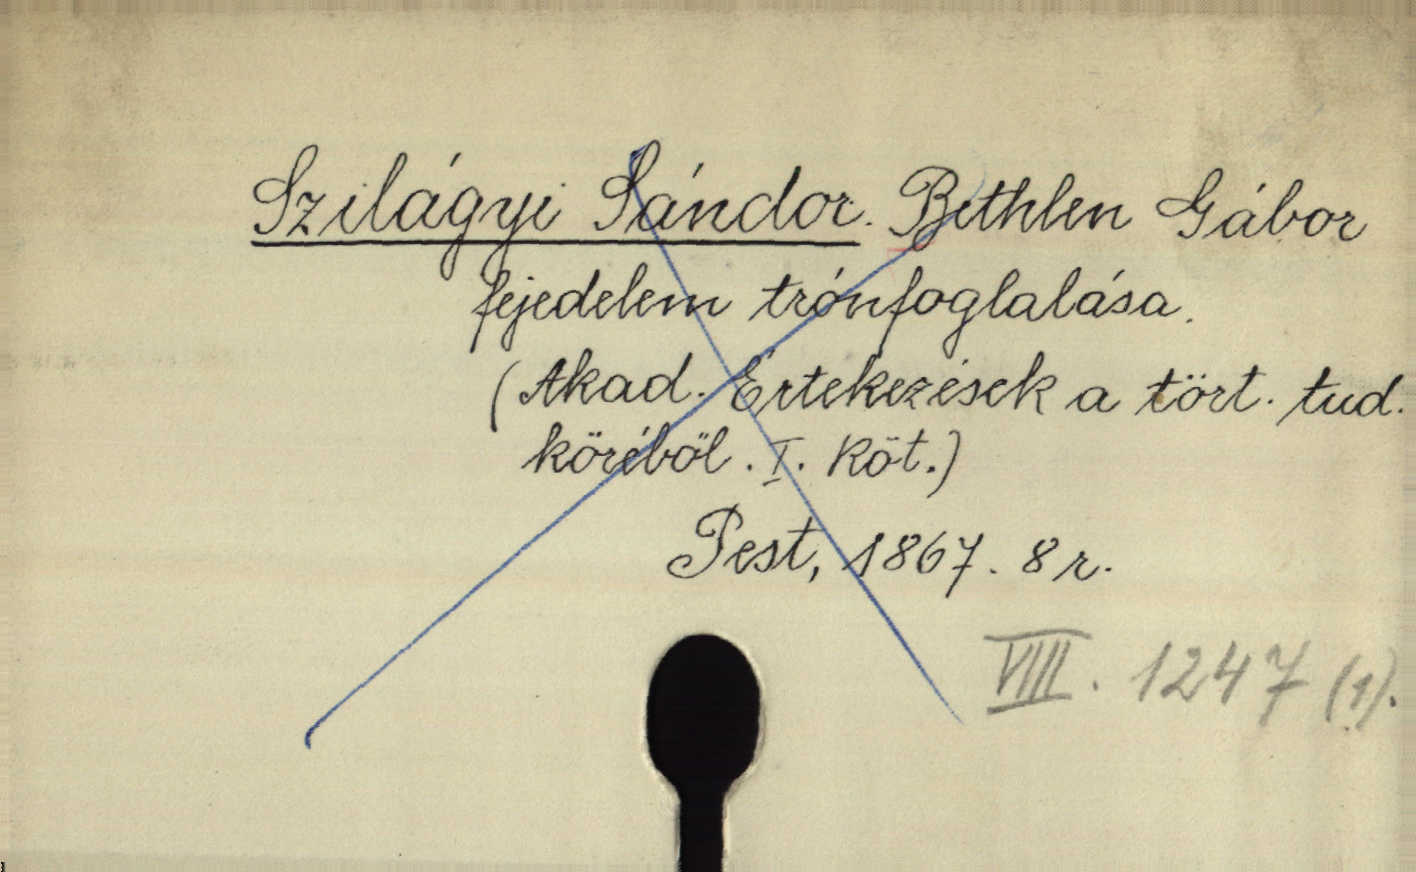 Szilágyi Sándor. Bethlen Gábor
fejedelem trónfoglalása.
(Akad. Értekezések a tört. tud.
köréböl. I. Köt.)
Pest, 1867. 8 r.
VIII. 1247 (1).